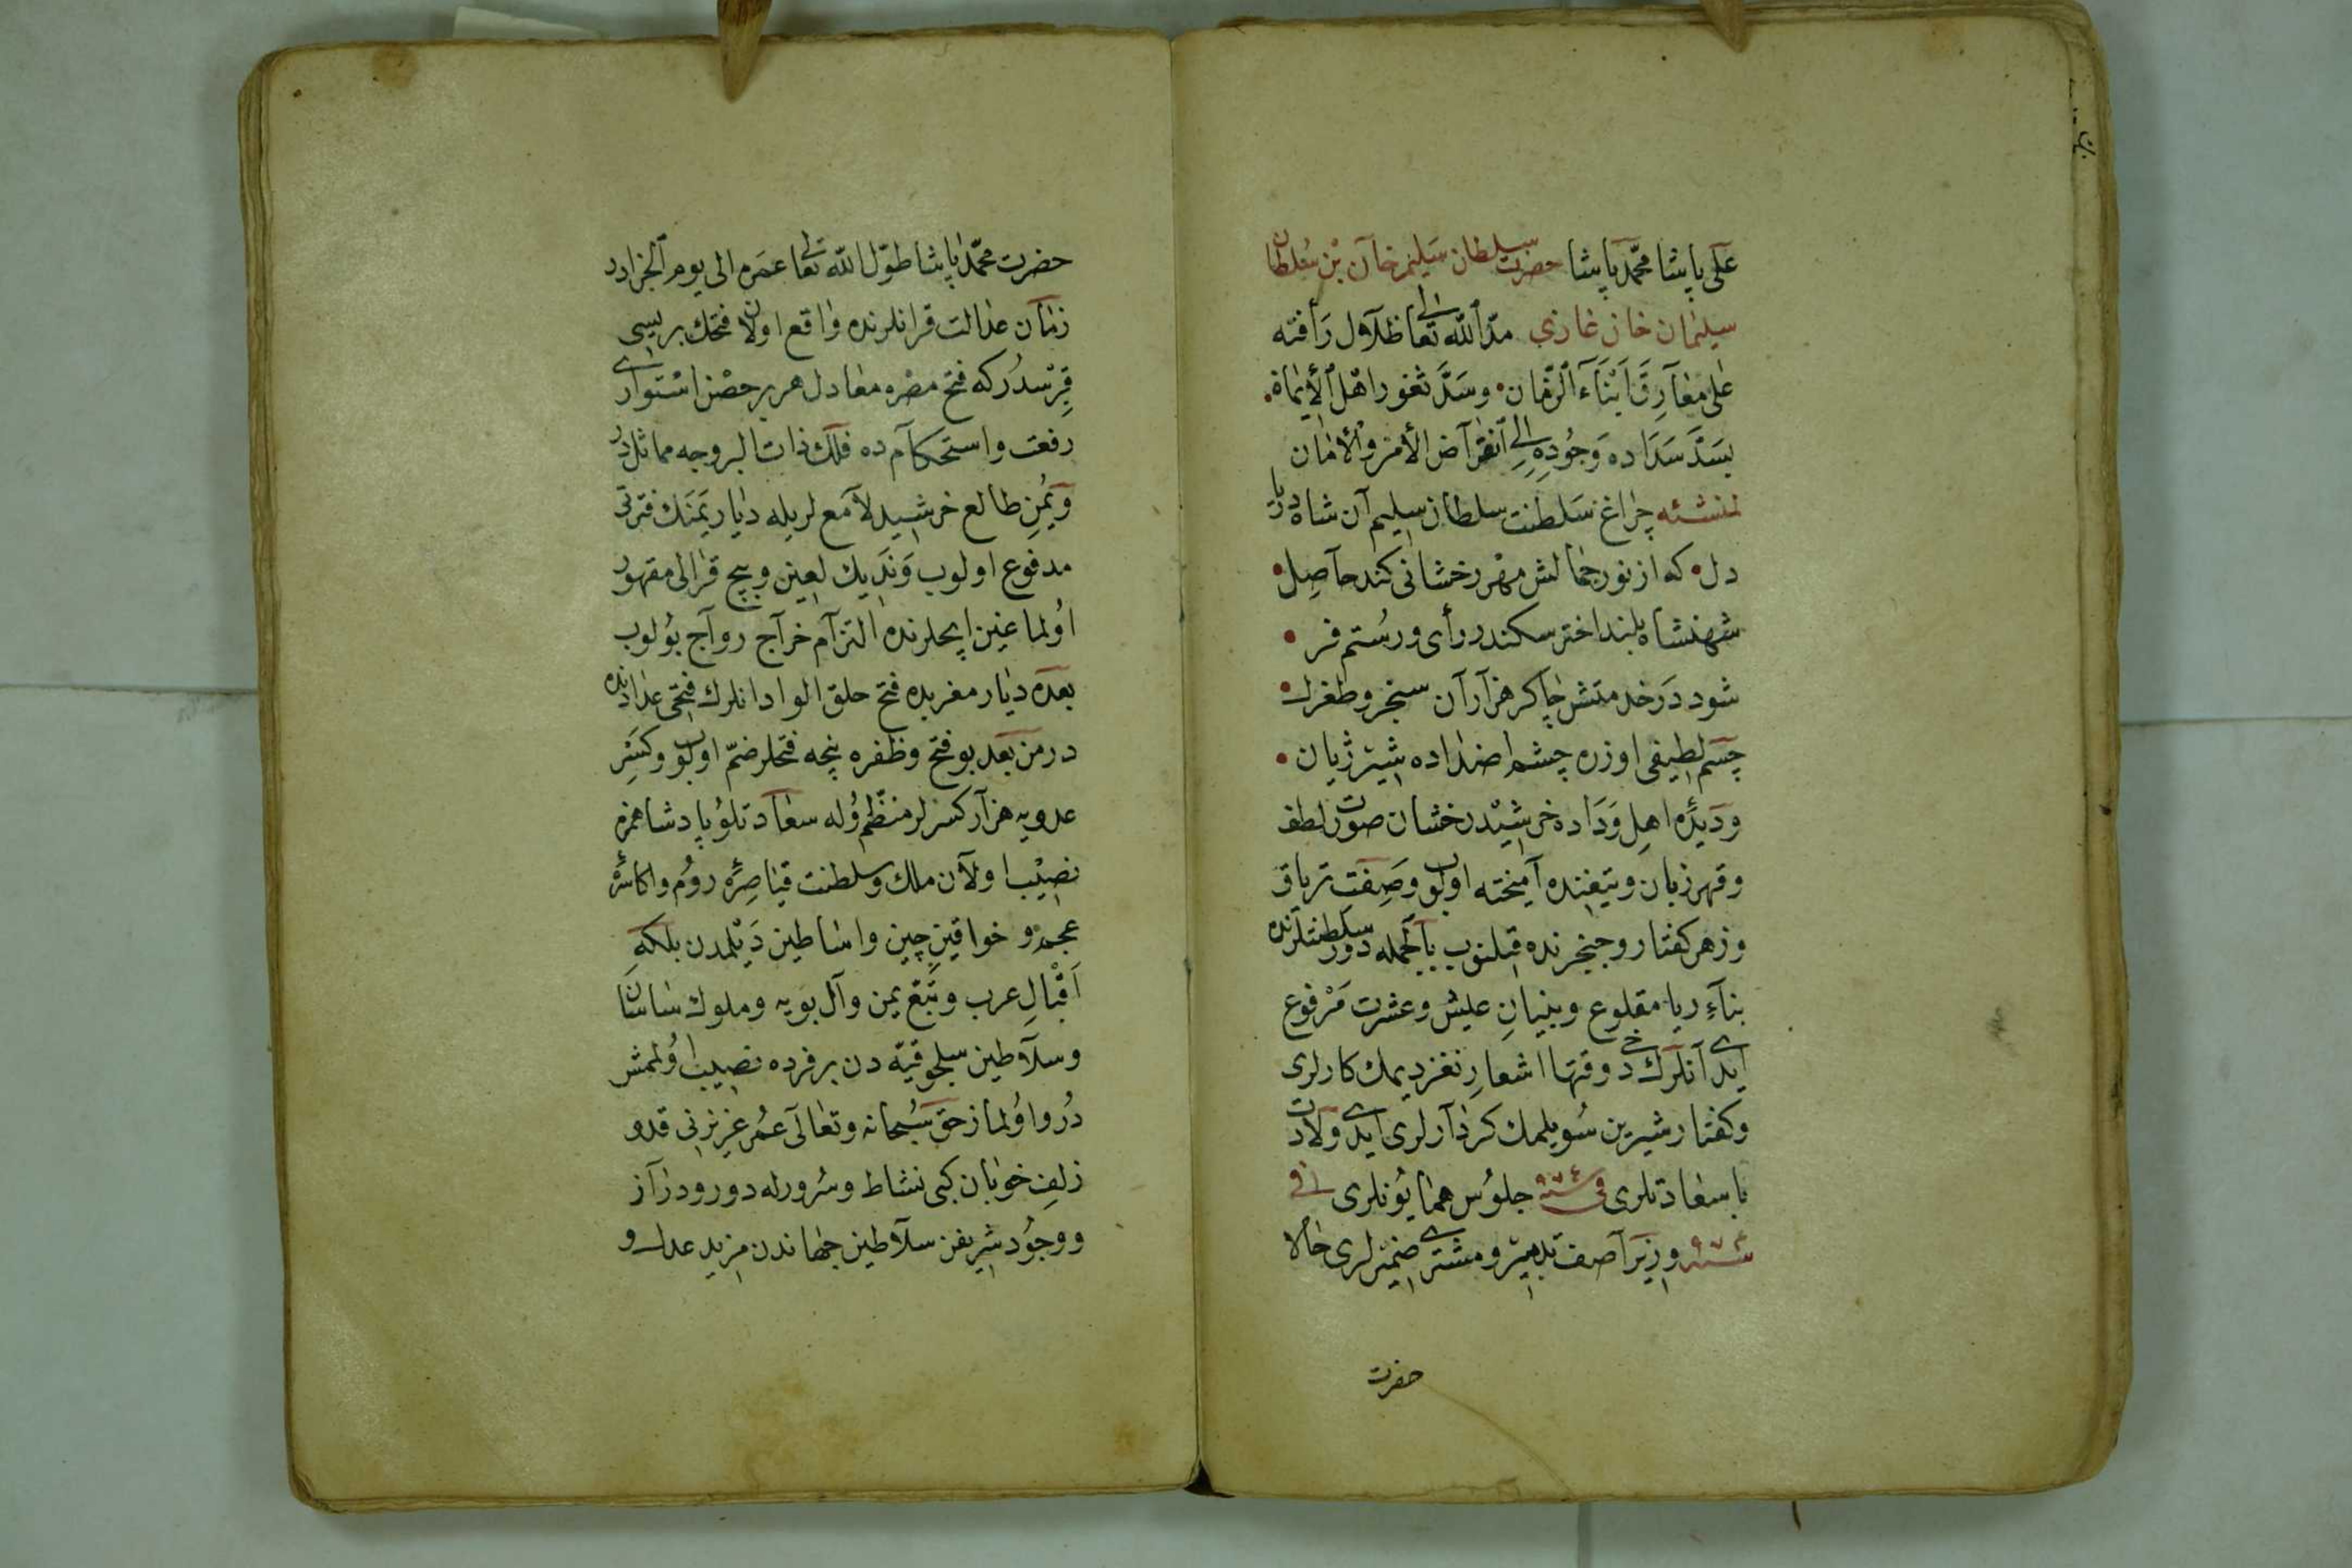 علی پاشا محمد پاشا حضرت سلطان سلیم خان بن سلطان
سلیمان خان غازی مد الله تعالی ظلال رأفته
علی مفارق ابناء الزمان وسد ثغور اهل الایمان
بسد سداده وجوده الی انقراض الأمن والامان
لمنشئه چراغ سلطنت سلطان سلیم آن شاه دریا
دل که از نور جمالش مهر رخشانی کند حاصل
شهنشاه بلند اختر سکندر رأی ورستم فر
شود در خدمتش چاکر هزاران سنجر وطغرل
جسم لطیفی اوزره چشم اضداده شیر ژیان
ودیدهٔ اهل وداده خرشید رخشان صورت لطف
وقهر زبان وتیغنده آمیخته اولوب وصفت تریاق
وزهر کفتار وخنجرنده قیلنوب بالجمله دور سلطنتلرنده
بناء ریا مقلوع وبنیان عیش وعشرت مرفوع
ایدی آنلرك دخی وقتها اشعار نغز دیمك کارلری
وکفتار شیرین سویلمك کردارلری ایدی ولادت
با سعادتلری فی سنه جلوس همایونلری فی
سنه ٩٧٤ وزیر آصف تدبیر ومشتری ضمیرلری حالا
حضرت
حضرت محمد پاشا طول الله تعالی عمره الی یوم الجزادر
زمان عدالت قرانلرنده واقع اولان فتحك بریسی
قبرسدرکه فتح مصره معادل هر بر حصن استواری
رفعت واستحکامده فلك ذات البروجه مماثلدر
ویمن طالع خرشید لامعلریله دیار یمنك فترتی
مدفوع اولوب وندیك لعین وبیچ قرالی مقهور
اولماغین ایچلرنده التزام خراج رواج بولوب
بعده دیار مغربده فتح حلق الواد انلرك فتحی عدادنده
در من بعد بو فتح وظفره نیچه فتحلر ضم اولوب وکسر
عدویه هزار کسرلر منظم اوله سعادتلو پادشاهمزه
نصیب اولان ملك وسلطنت قیاصرهٔ روم واکاسرهٔ
عجم و خواقین چین واساطین دیلمدن بلکه
اقبال عرب وتبع یمن وآل بویه وملوك ساسان
وسلاطین سلجوقیه دن بر فرده نصیب اولمش
در واولماز حق سبحانه وتعالی عمر عزیزنی قد و
زلف خوبان کبی نشاط وسرورله دور ودراز
ووجود شریفن سلاطین جهاندن مزید عدل و